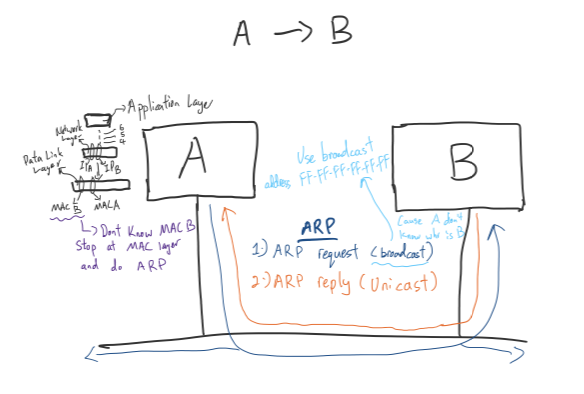 A → B
Application Layer
Network Layer
6
5
4
Data Link Layer
IPA
IPB
MAC B
MAC A
Dont Know MAC B
Stop at MAC layer
and do ARP
A
B
Use broadcast
address FF-FF-FF-FF-FF-FF
Cause A don't
know who is B
ARP
1.) ARP request (broadcast)
2.) ARP reply (Unicast)